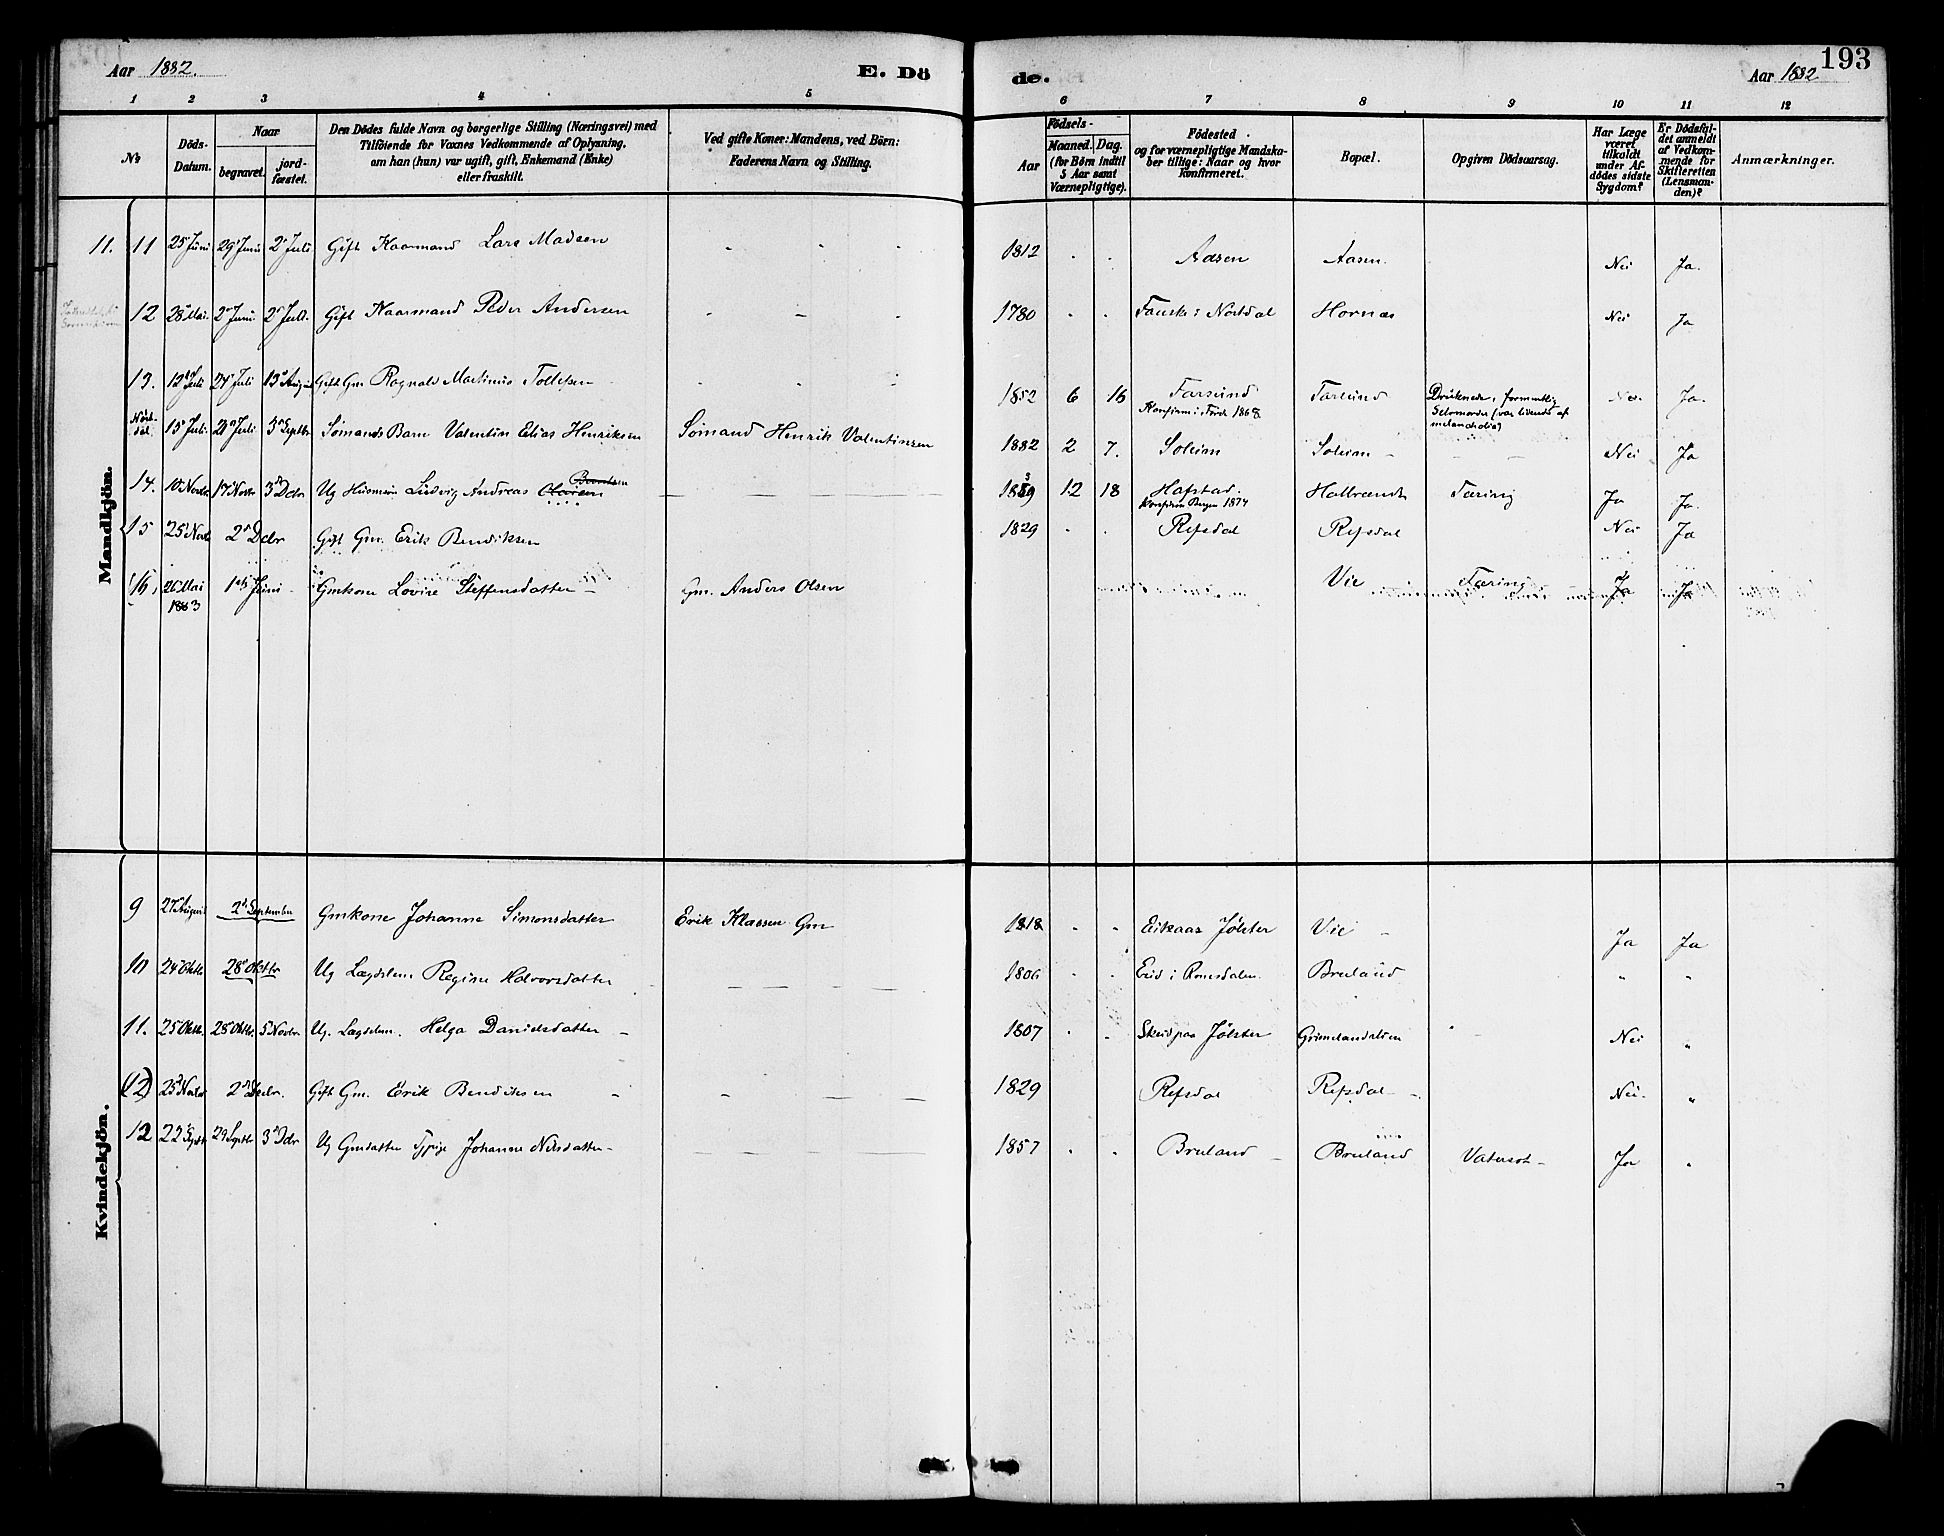 193
Aar 1882.
E. Dö
de.
Aar 1882
1 2 3 4 5 6 7 8 9 10 11 12
No
Döds-Datum.
Naar
begravet.
jord-fæstet.
Den Dödes fulde Navn og borgerlige Stilling (Næringsvei) med
Tilföiende for Voxnes Vedkommende af Oplysning,
om han (hun) var ugift, gift, Enkemand (Enke)
eller fraskilt.
Ved gifte Koner: Mandens, ved Börn:
Faderens Navn og Stilling.
Födsels-
Aar
Maaned. Dag.
(for Börn indtil
5 Aar samt
Værnepligtige).
Födested
og for værnepligtige Mandska-
ber tillige: Naar og hvor
konfirmeret.
Bopæl.
Opgiven Dödsaarsag.
Har Læge
været
tilkaldt
under Af-
dödes sidste
Sygdom?
Er Dödsfal-
det anmeldt
af Vedkom-
mende for
Skifteretten
(Lensman-
den)?
Anmærkninger.
Mandkjön.
11. 11 25 Juni 29 Juni 2 Juli Gift Kaarmand Lars Madsen 1812 Aasen Aasen. Nei Ja.
12 28 Mai 2 Juni 2 Juli Gift Kaarmand Peder Andersen 1780 Fauske i Nordal Hornæs Nei Ja
13. 12 Juli 24 Juli 13 August Gift Gm Ragnald Martinus Tollefsen 1852 6 16 Farsund Farsund Druknede, formentlig Nei Ja.
Konfirm i Førde 1868 Selvmorder (var lidende af
melancholia)
Nord-dal 15 Juli 20 Juli 3 Septbr Sømands Barn Valentin Elias Henriksen Sømand Henrik Valentinsen 1882 2 7. Soleim Soleim - Nei Ja
14. 10 Novbr 17 Novbr 3 Dcbr Ug Husmsøn Ludvig Andreas Olaisen 1859 12 18 Hafstad. Halbrendt Tæring Ja Ja.
Konfirm Bergen 1874
15 25 Novbr 2 Dcbr Gift Gm. Erik Bendiksen 1829 Refsdal Refsdal Nei Ja
(16) 26 Mai 1ste Juni Gmkone Lovise Steffensdatter - Gm. Anders Olsen Vie Tæring Ja Ja
1883
Kvindekjön.
9 27 August 2 September Gmkone Johanne Simonsdatter Erik Klaussen Gm 1818 Eikaas Jølster Vie - Ja Ja
10 24 Oktbr 28 Oktbr Ug Lægdslem Regine Halvorsdatter 1806 Eid i Romsdalen Bruland " "
11. 25 Oktbr. 28 Oktbr. 5 Novbr Ug. Lægdslem. Helga Danielsdatter - 1807 Skeid paa Jølster Grimelandslien Nei "
(12) 25 Novbr 2 Decbr. Gift Gm. Erik Bendiksen 1829 Refsdal Refsdal - Nei. "
12 22 Septbr 29 Septbr 3 Dcbr Ug Gmdatter Tjpige Johanne Nilsdatter - 1857 Bruland - Bruland Vatersot - Ja "